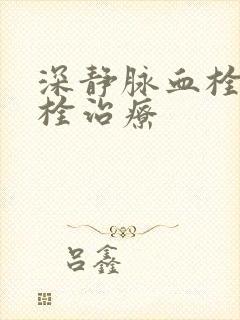 深静脉血栓
栓治疗
吕鑫